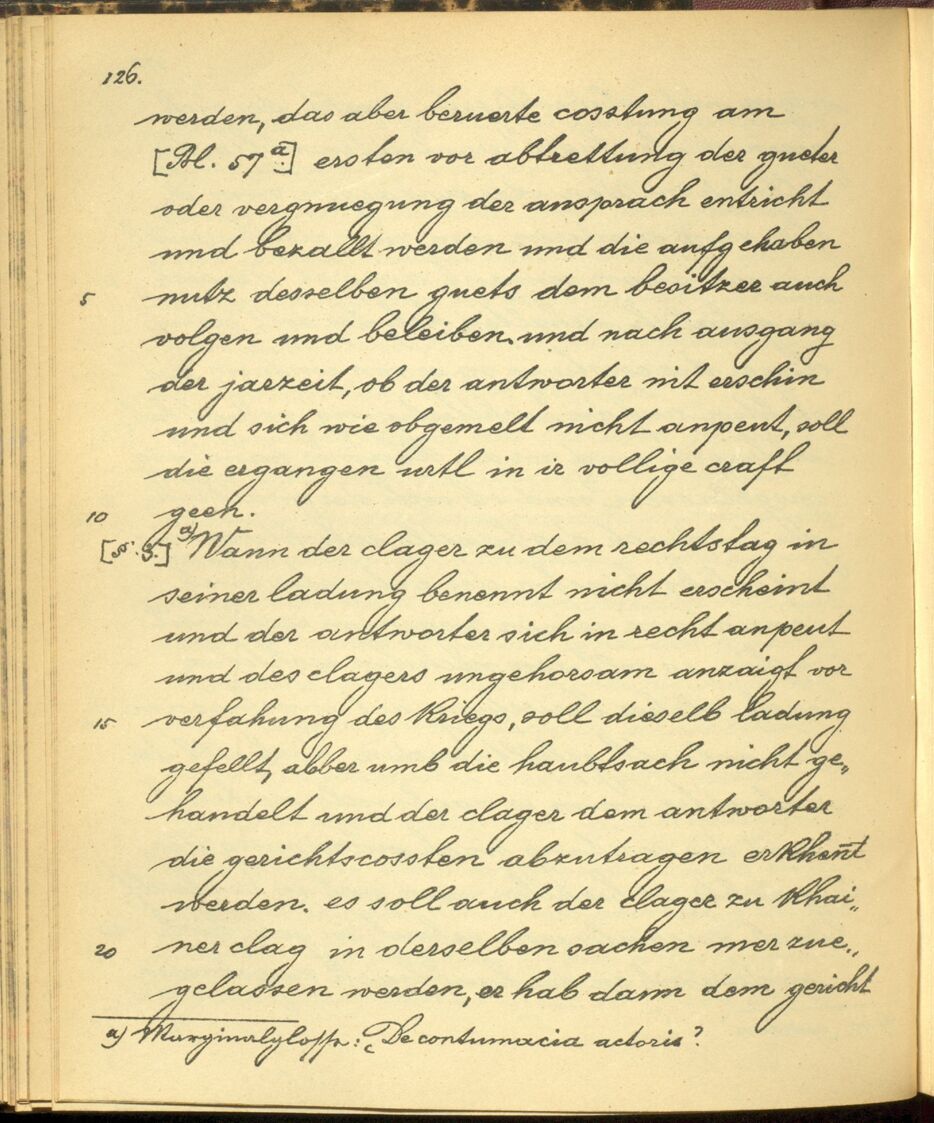 126.
werden, das aber beruerte cosstung am
[Bl. 57 a] ersten vor abtrettung der gueter
oder vergnuegung der ansprach entricht
und bezallt werden und die aufgehaben
5 nutz desselben guets dem besitzer auch
volgen und beleiben. und nach ausgang
der jarzeit, ob der antworter nit erschin
und sich wie obgemelt nicht anpeut, soll
die ergangen urtl in ir vollige craft
10 geen.
[§. 3.] a) Wann der clager zu dem rechtstag in
seiner ladung benennt nicht erscheint
und der antworter sich in recht anpeut
und des clagers ungehorsam anzaigt vor
15 verfahung des kriegs, soll dieselb ladung
gefellt, abber umb die haubtsach nicht ge„
handelt und der clager dem antworter
die gerichtscossten abzutragen erkhen̄t
werden. es soll auch der clager zu khai„
20 ner clag in derselben sachen mer zue„
gelassen werden, er hab dann dem gericht
a) Marginalglosse: „De contumacia actoris“